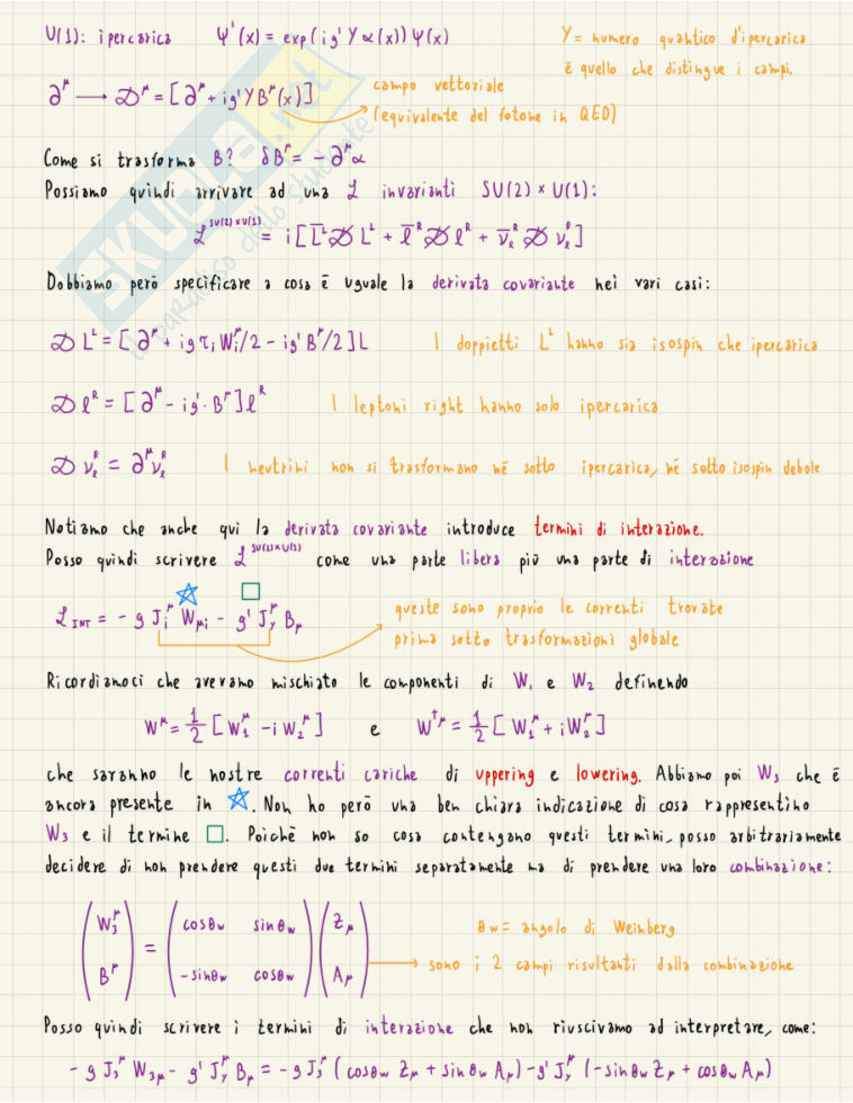 U(1): ipercarica ψ'(x) = exp(ig'Yα(x))ψ(x) Y = numero quantico d'ipercarica
è quello che distingue i campi.
∂^μ → 𝒟^μ = [∂^μ + ig'YB^μ(x)] campo vettoriale
(equivalente del fotone in QED)
Come si trasforma B? δB^μ = -∂^μα
Possiamo quindi arrivare ad una ℒ invarianti SU(2) × U(1):
ℒ^SU(2)×U(1) = i[L̄^L 𝒟̸ L^L + l̄^R 𝒟̸ l^R + ν̄_l^R 𝒟̸ ν_l^R]
Dobbiamo però specificare a cosa è uguale la derivata covariante nei vari casi:
𝒟 L^L = [∂^μ + igτ_i W_i^μ/2 - ig'B^μ/2]L I doppietti L^L hanno sia isospin che ipercarica
𝒟 l^R = [∂^μ - ig'·B^μ]l^R I leptoni right hanno solo ipercarica
𝒟 ν_l^R = ∂^μ ν_l^R I neutrini non si trasformano né sotto ipercarica, né sotto isospin debole
Notiamo che anche qui la derivata covariante introduce termini di interazione.
Posso quindi scrivere ℒ^SU(2)×U(1) come una parte libera più una parte di interazione
ℒ_INT = -g J_i^μ W_μi - g' J_y^μ B_μ queste sono proprio le correnti trovate
prima sotto trasformazioni globale
Ricordiamoci che avevamo mischiato le componenti di W₁ e W₂ definendo
W^μ = 1/2 [W_1^μ - iW_2^μ] e W^†μ = 1/2 [W_1^μ + iW_2^μ]
che saranno le nostre correnti cariche di uppering e lowering. Abbiamo poi W₃ che è
ancora presente in ☆. Non ho però una ben chiara indicazione di cosa rappresentino
W₃ e il termine □. Poiché non so cosa contengano questi termini, posso arbitrariamente
decidere di non prendere questi due termini separatamente ma di prendere una loro combinazione:
(W_3^μ) = (cosθw sinθw) (Z_μ) θw = angolo di Weinberg
(B^μ) (-sinθw cosθw) (A_μ) → sono i 2 campi risultanti dalla combinazione
Posso quindi scrivere i termini di interazione che non riuscivamo ad interpretare, come:
-g J_3^μ W_3μ - g' J_y^μ B_μ = -g J_3^μ (cosθw Z_μ + sinθw A_μ) - g' J_y^μ (-sinθw Z_μ + cosθw A_μ)
SKUOLA.net
il paradiso dello studente